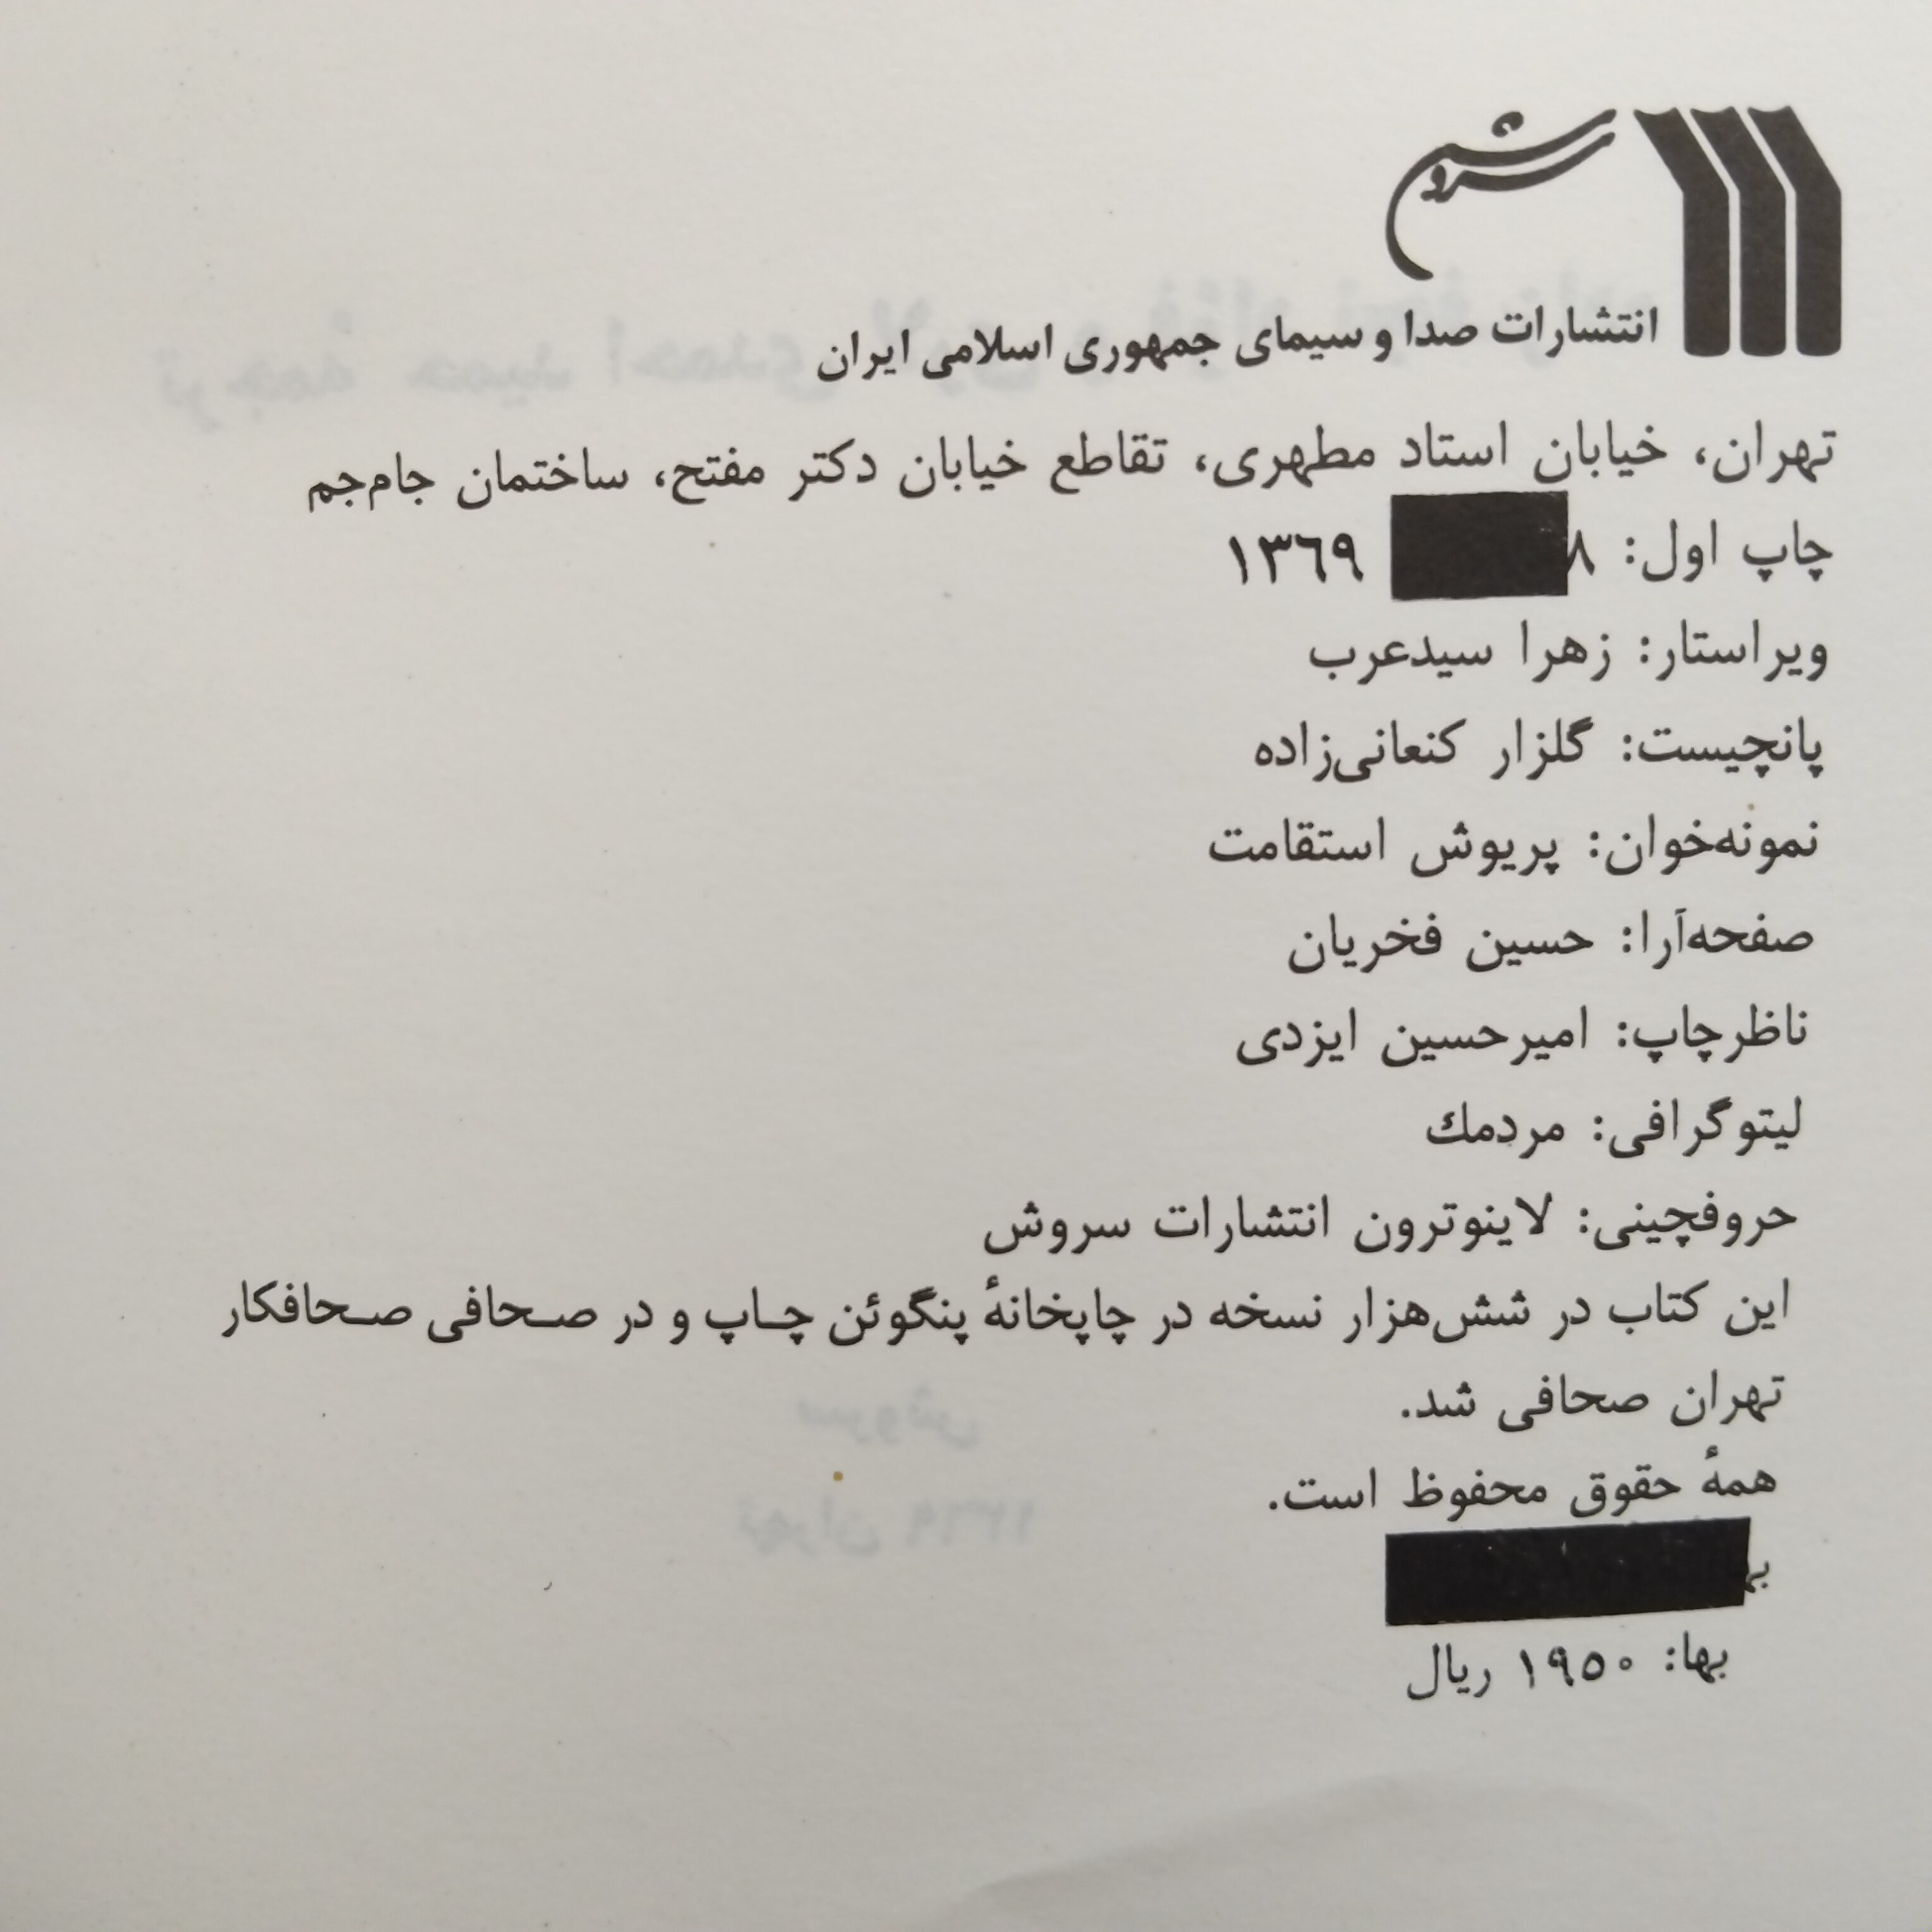 سروش
انتشارات صدا و سیمای جمهوری اسلامی ایران
تهران، خیابان استاد مطهری، تقاطع خیابان دکتر مفتح، ساختمان جام‌جم
چاپ اول: ۱۳۶۹
ویراستار: زهرا سیدعرب
پانچیست: گلزار کنعانی‌زاده
نمونه‌خوان: پریوش استقامت
صفحه‌آرا: حسین فخریان
ناظر چاپ: امیرحسین ایزدی
لیتوگرافی: مردمك
حروفچینی: لاینوترون انتشارات سروش
این کتاب در شش‌هزار نسخه در چاپخانهٔ پنگوئن چـاپ و در صـحافی صـحافکار
تهران صحافی شد.
همهٔ حقوق محفوظ است.
بها: ۱۹۵۰ ریال